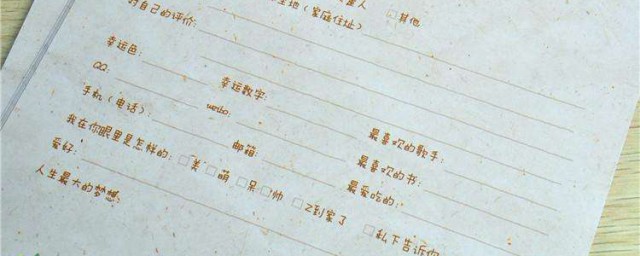 人 □其他
地（家庭住址）
对自己的评价:
幸运色: 幸运数字: 最喜欢的歌手:
QQ: weibo: 最喜欢的书:
手机（电话）: 邮箱: 最爱吃的:
我在你眼里是怎样的: □美 □萌 □呆 □帅 □乙到家了 □私下告诉你
爱好:
人生最大的梦想: